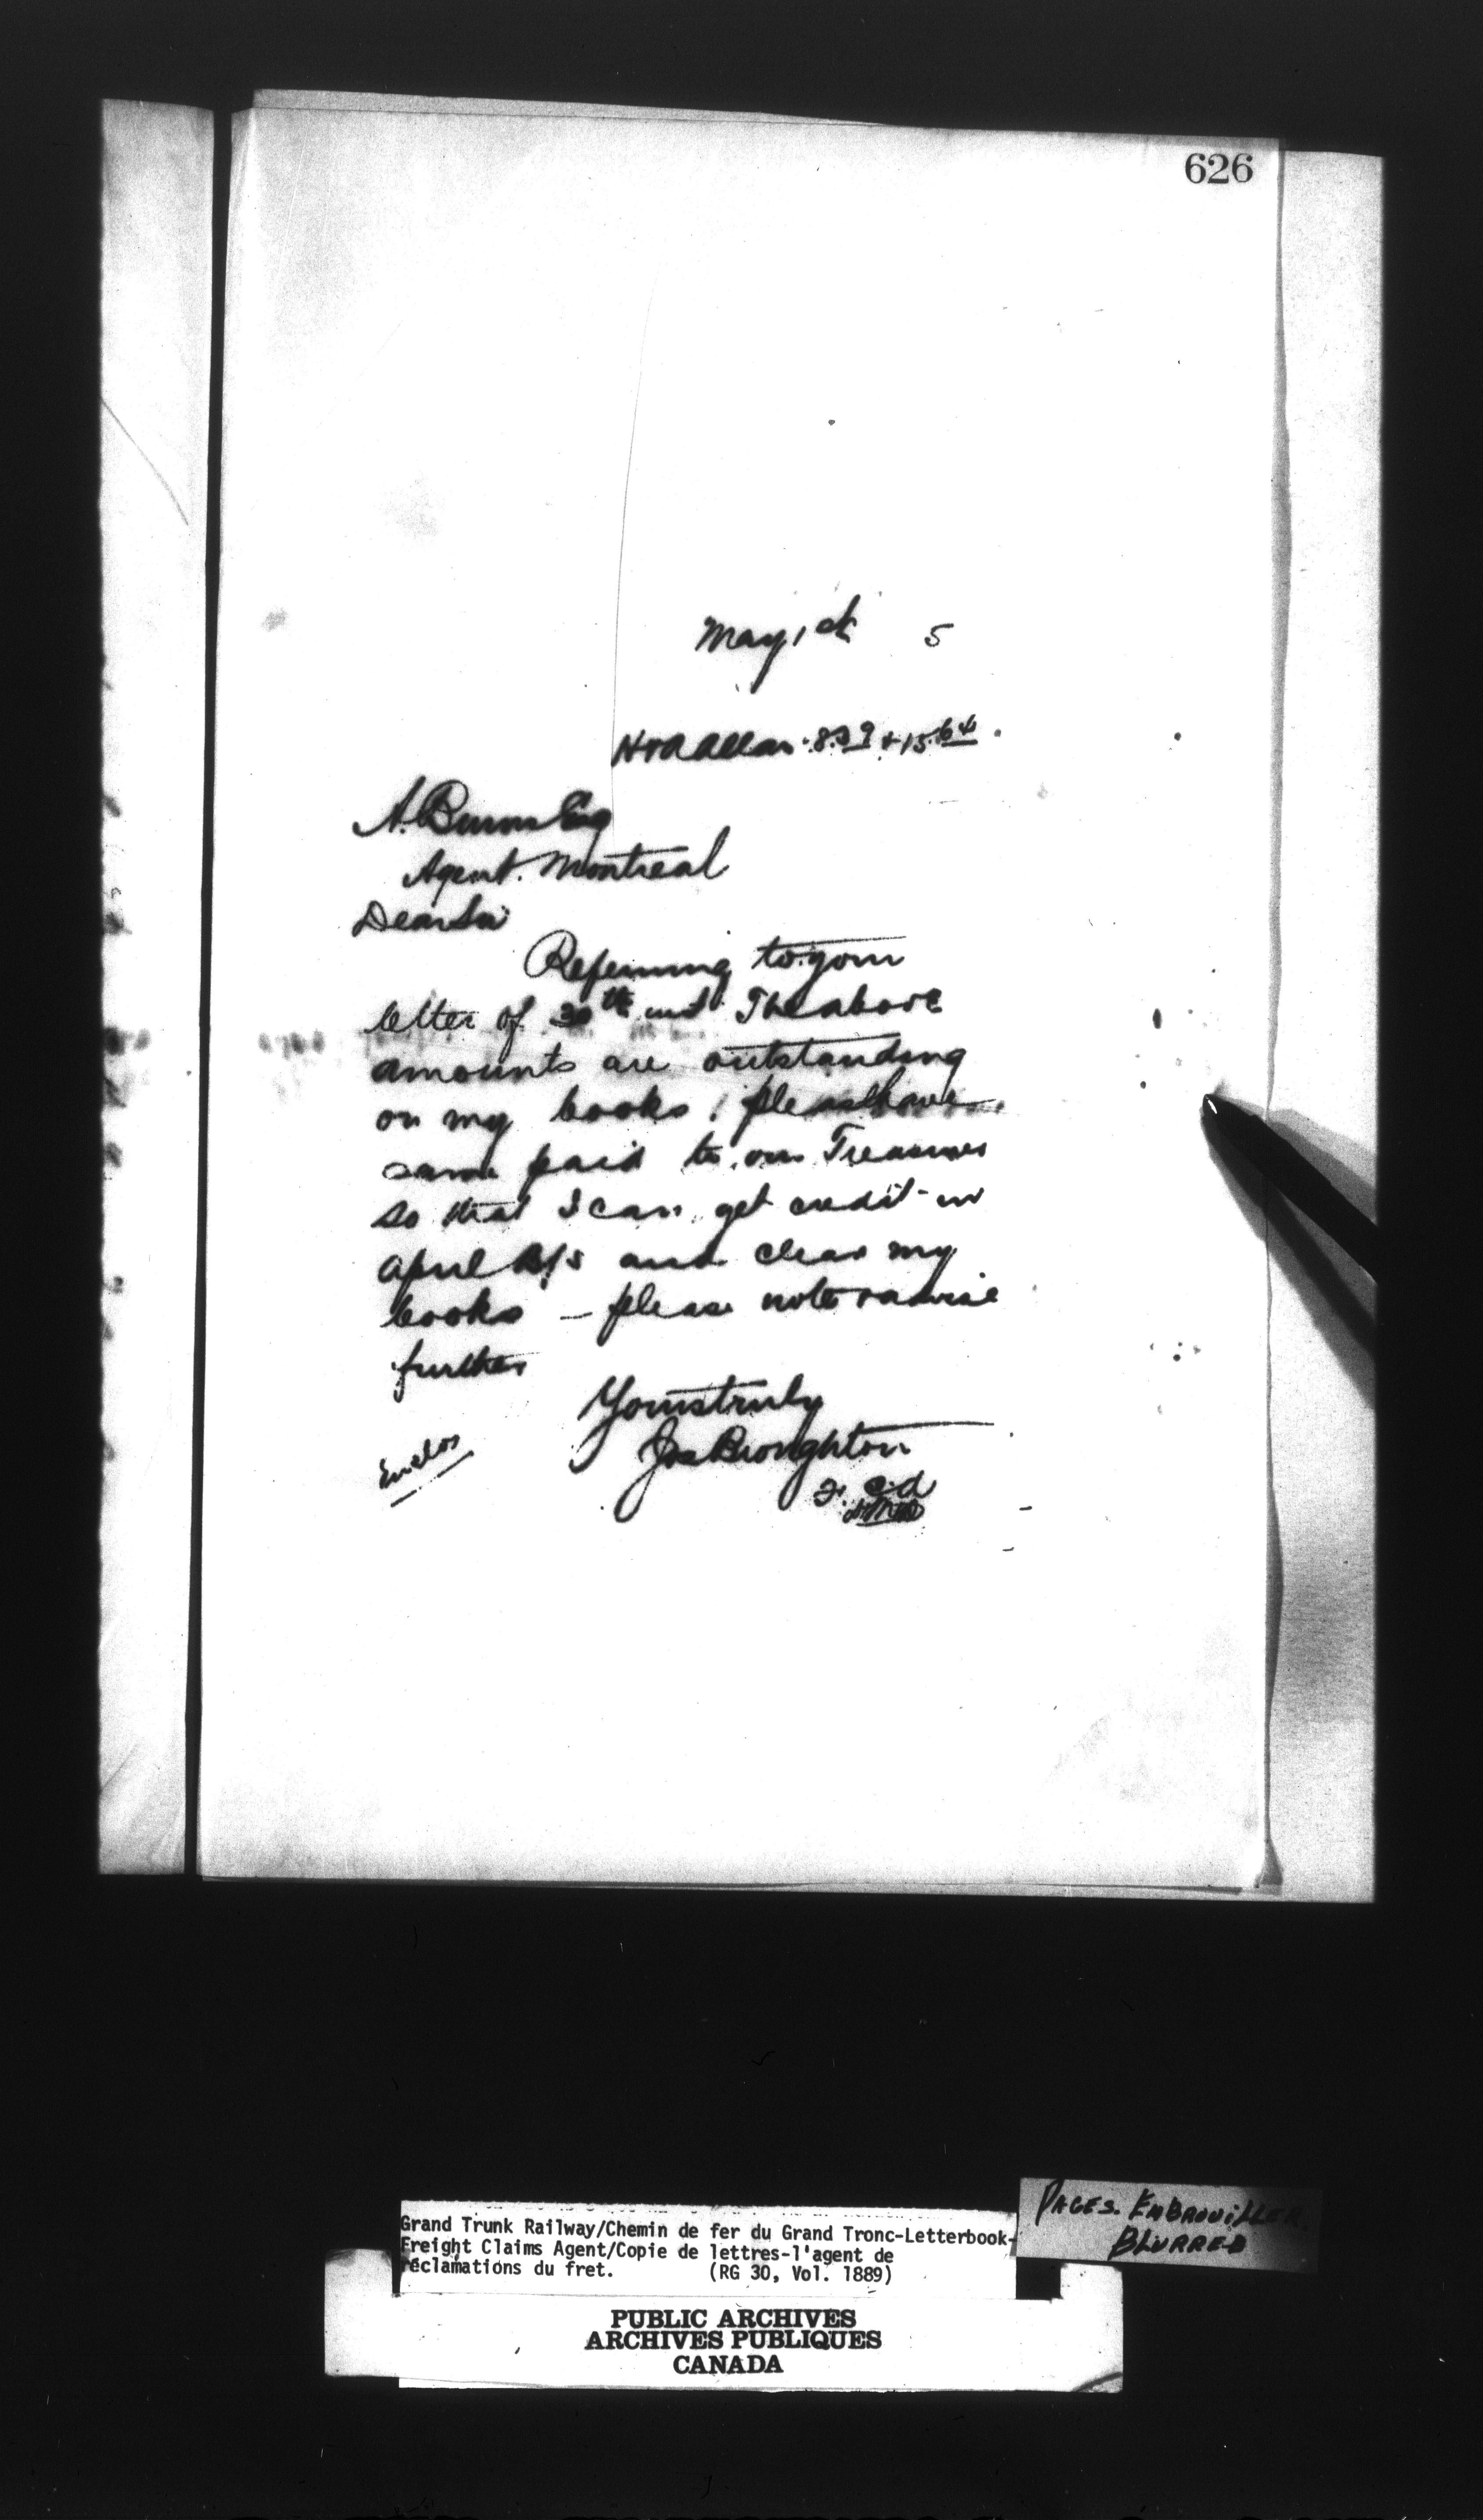 626
May 1st 5
H & A Allan 8.39 & 15.64
A. Burns Esq
Agent. Montreal
Dear Sir
Referring to your
letter of 30th inst The above
amounts are outstanding
on my books, please have
same paid to our Treasurer
so that I can get credit in
April B/S and clear my
books – please note & advise
further
Yours truly
Jos Broughton
Enclos
Grand Trunk Railway/Chemin de fer du Grand Tronc-Letterbook-
Freight Claims Agent/Copie de lettres-l'agent de
réclamations du fret. (RG 30, Vol. 1889)
PAGES. EMBROUILLER.
BLURRED
PUBLIC ARCHIVES
ARCHIVES PUBLIQUES
CANADA